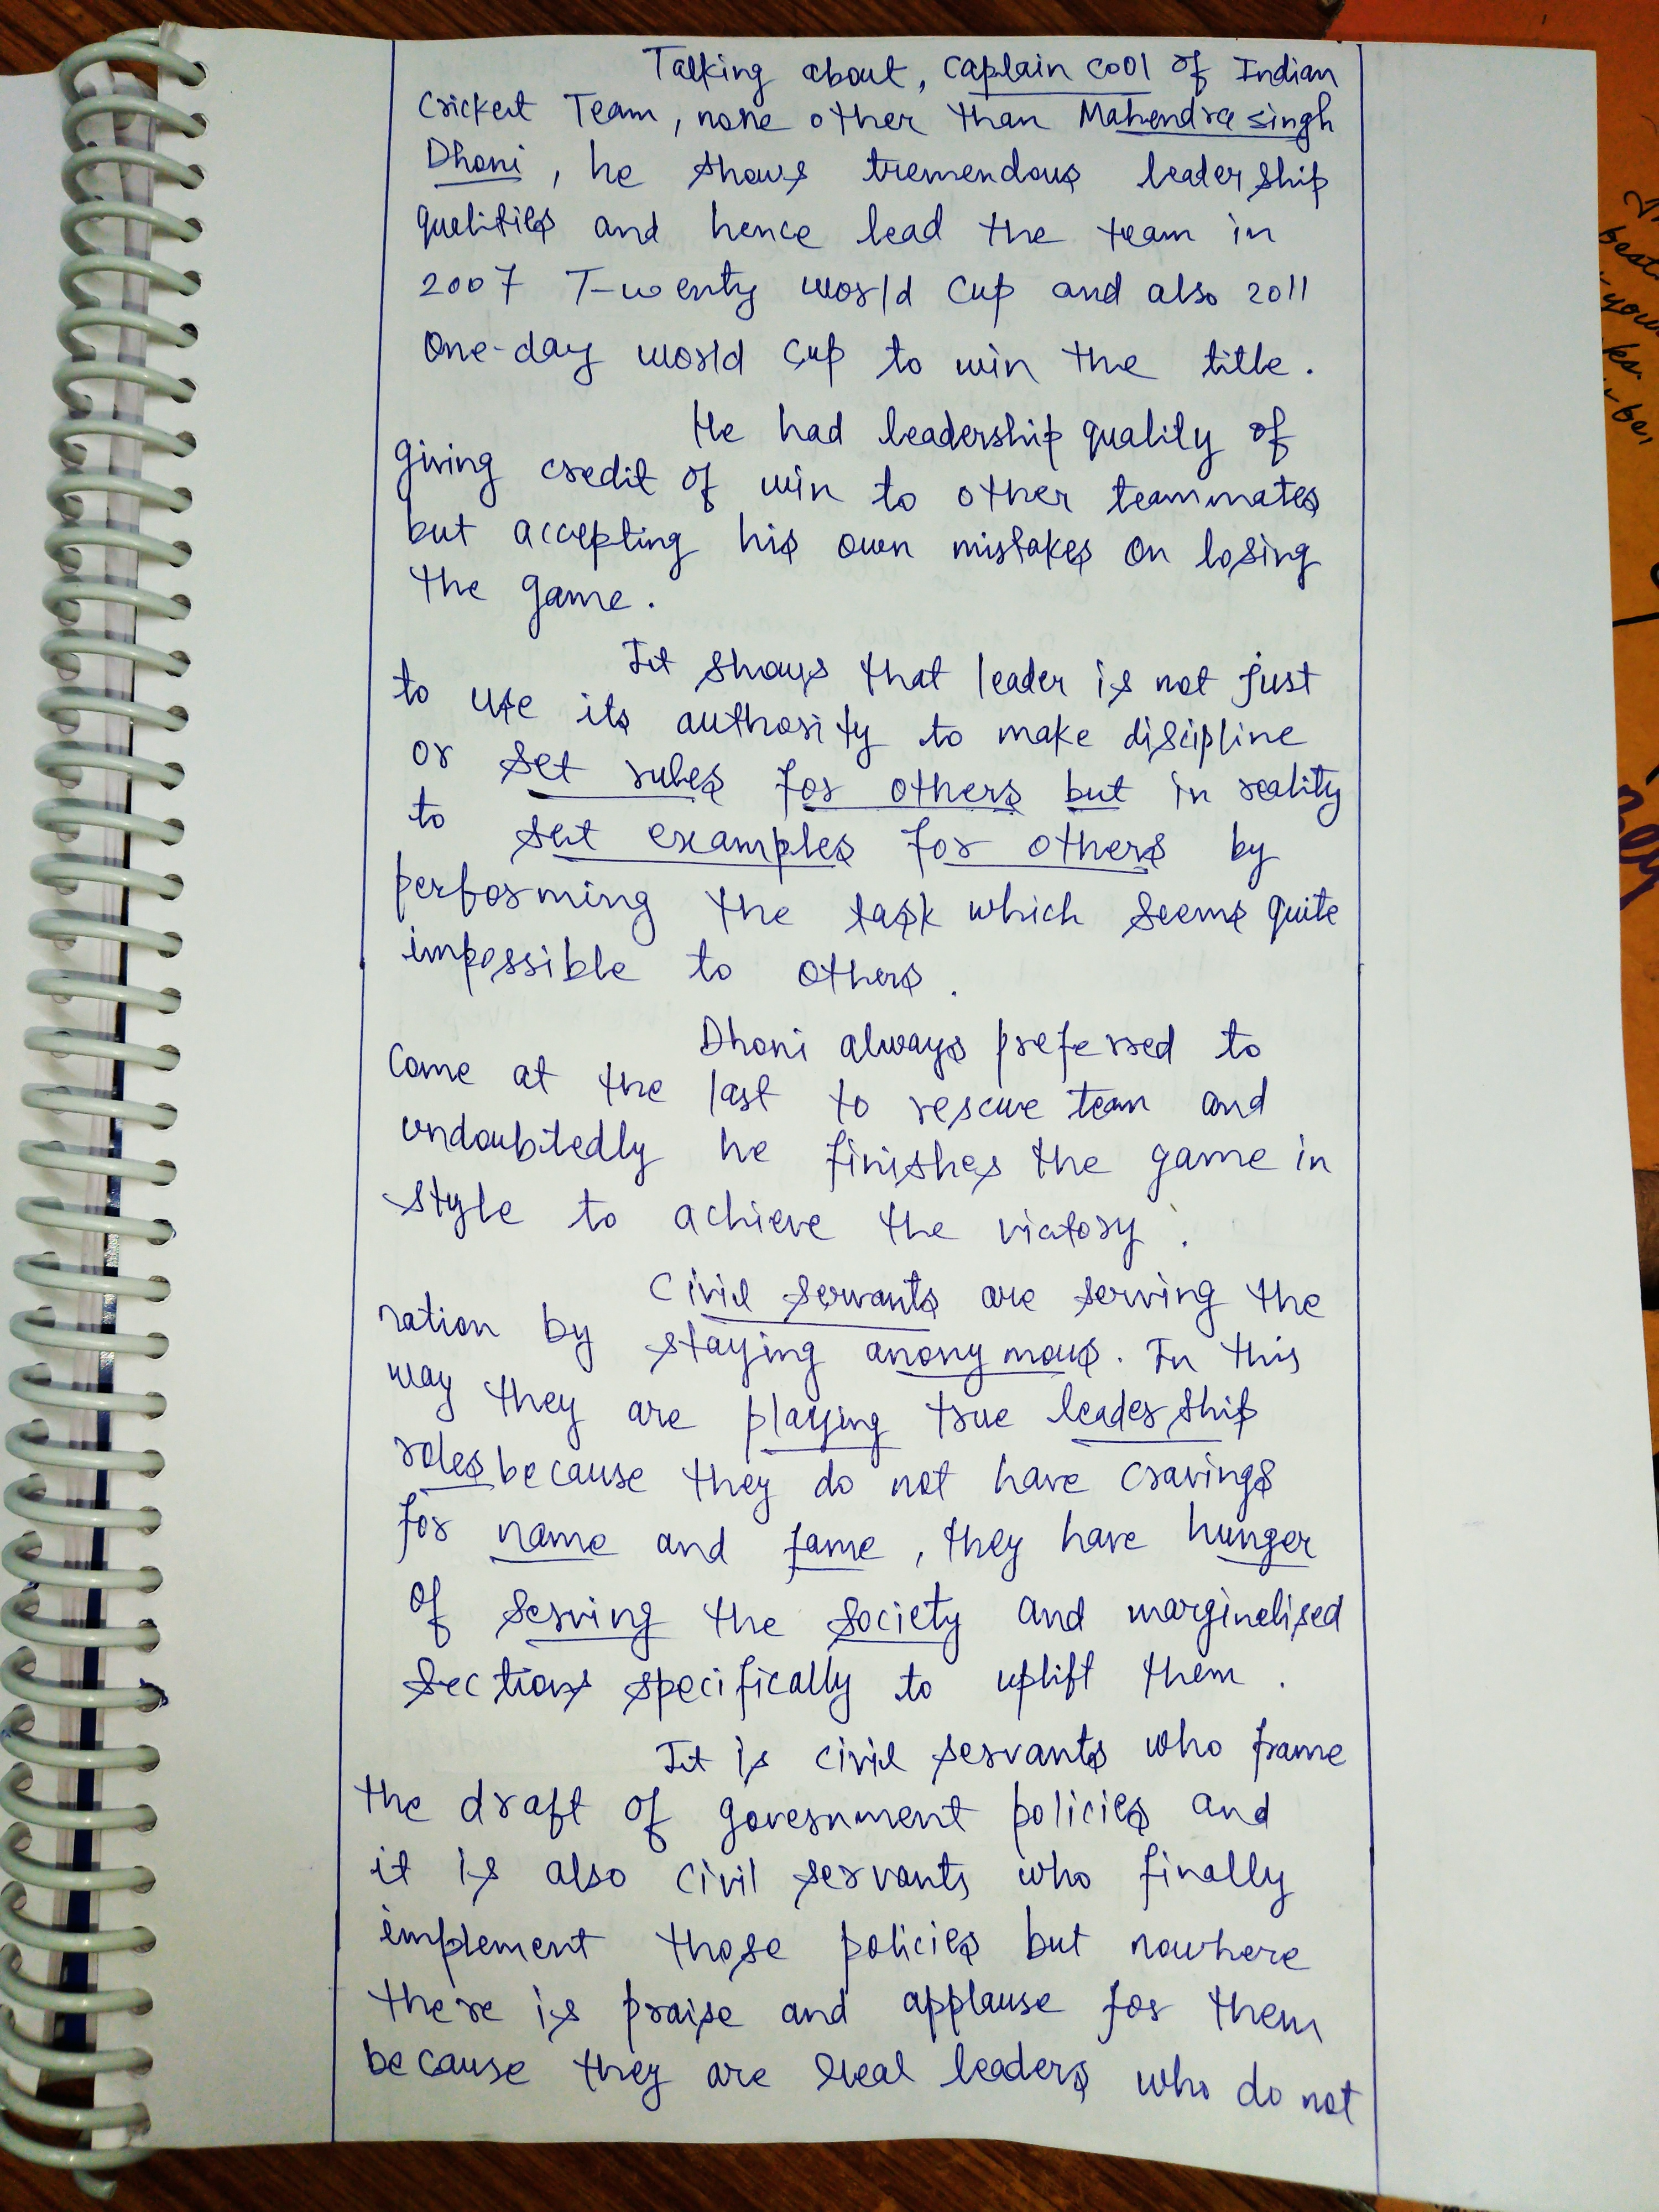 Talking about, Captain Cool of Indian
Cricket Team, none other than Mahendra Singh
Dhoni, he shows tremendous leadership
qualities and hence lead the team in
2007 T-wenty world cup and also 2011
One-day world cup to win the title.
He had leadership quality of
giving credit of win to other teammates
but accepting his own mistakes on losing
the game.
It shows that leader is not just
to use its authority to make discipline
or set rules for others but in reality
to set examples for others by
performing the task which seems quite
impossible to others.
Dhoni always preferred to
come at the last to rescue team and
undoubtedly he finishes the game in
style to achieve the victory.
Civil servants are serving the
nation by staying anonymous. In this
way they are playing true leadership
roles because they do not have cravings
for name and fame, they have hunger
of serving the society and marginalised
sections specifically to uplift them.
It is civil servants who frame
the draft of government policies and
it is also civil servants who finally
implement those policies but nowhere
there is praise and applause for them
because they are real leaders who do not
best
you